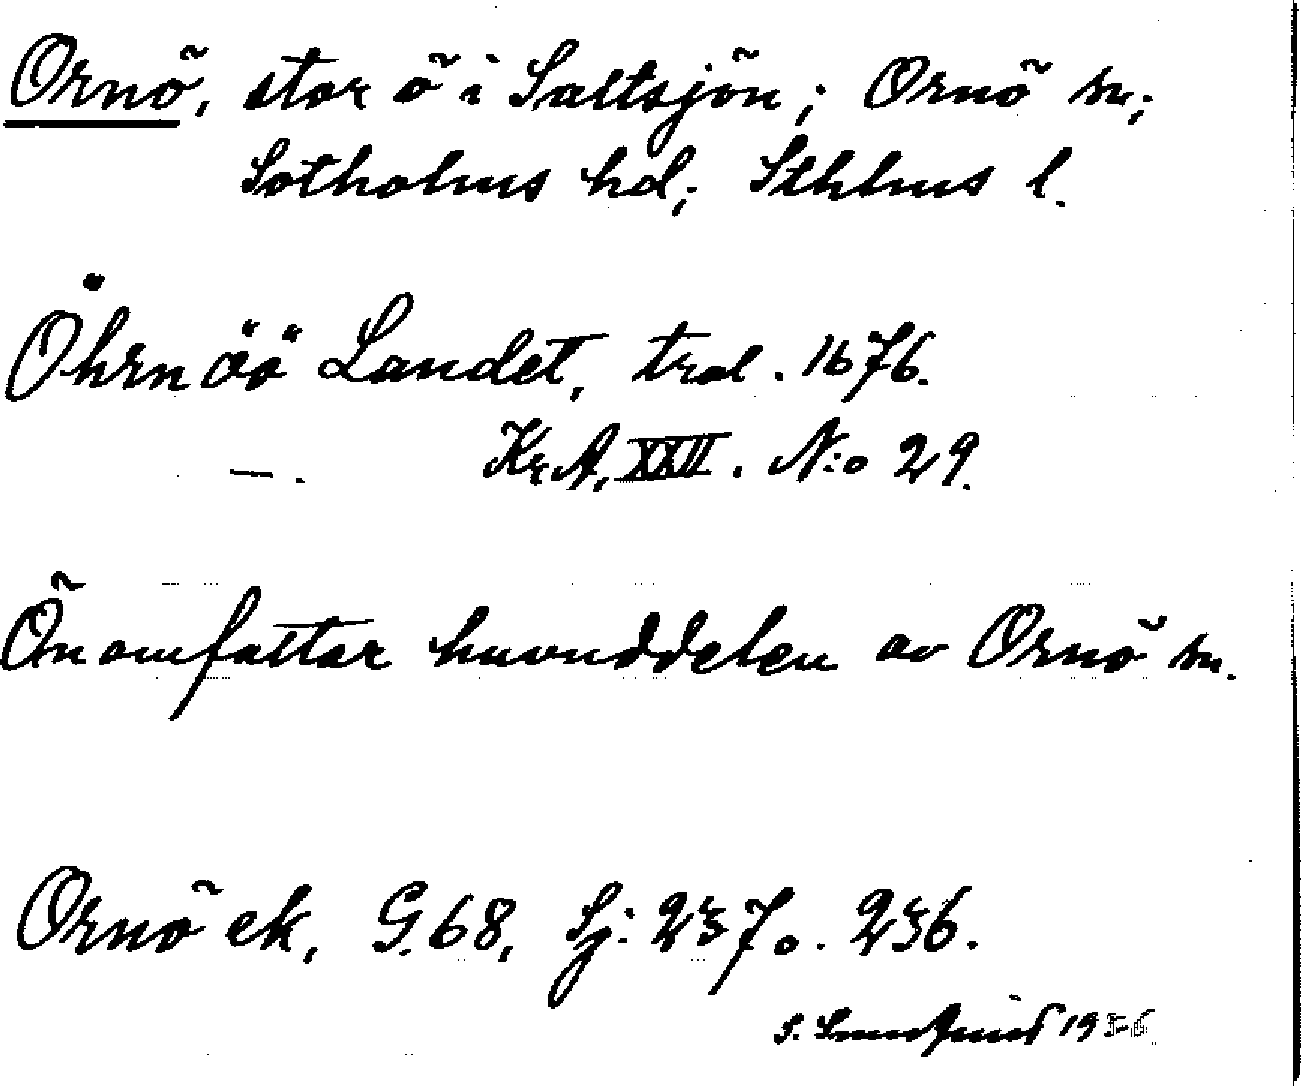 Ornö, stor ö i Saltsjön; Ornö sn;
Sotholms hd; Sthlms l.
Öhrn öö Landet, trol. 1676.
—. Kr.A. XXII. N:o 29.
Ön omfattar huvuddelen av Ornö sn.
Ornö ek, G.68, Sj: 237 o. 236.
S. 1956